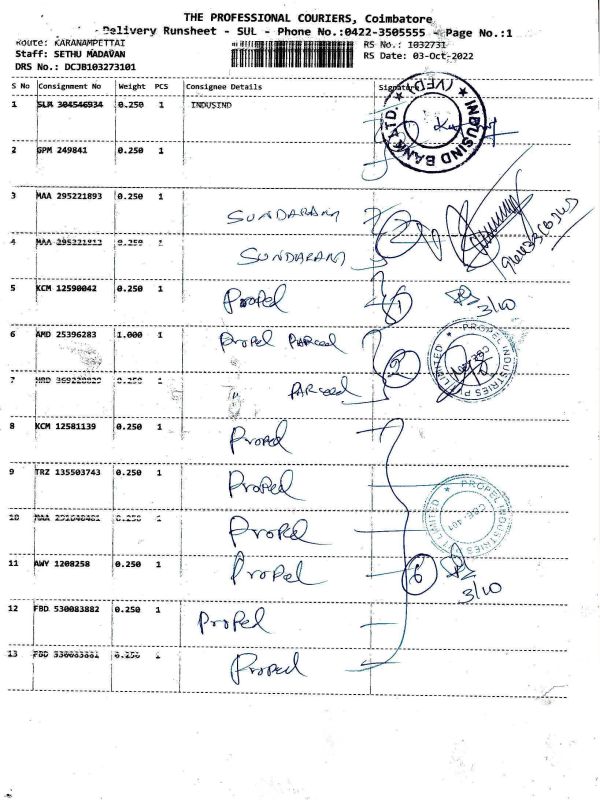 THE PROFESSIONAL COURIERS, Coimbatore
Delivery Runsheet - SUL - Phone No.:0422-3505555 - Page No.:1
Route: KARANAMPETTAI
RS No.: 1032731
Staff: SETHU MADAVAN
RS Date: 03-Oct-2022
DRS No.: DCJB103273101
S No Consignment No Weight PCS Consignee Details Signature
1 SLM 304546934 0.250 1 INDUSIND
INDUSIND BANK LTD. (VED)
2 GPM 249841 0.250 1
3 MAA 295221893 0.250 1
SUNDARAM
2
4 0.250 1
SUNDARAM
5 KCM 12590042 0.250 1
Propel 1
3/10
6 AMD 25396283 1.000 1
Propel Parceel
2
PROPEL INDUSTRIES P LIMITED
7 0.250 1
" Parceel
8 KCM 12581139 0.250 1
Propel
9 TRZ 135503743 0.250 1
Propel
PROPEL INDUSTRIES LIMITED
CBE-401
10 0.250 1
Propel
11 AWY 1208258 0.250 1
Propel 6
3/10
12 FBD 530083882 0.250 1
Propel
13 FBD 530083881 0.250 1
Propel